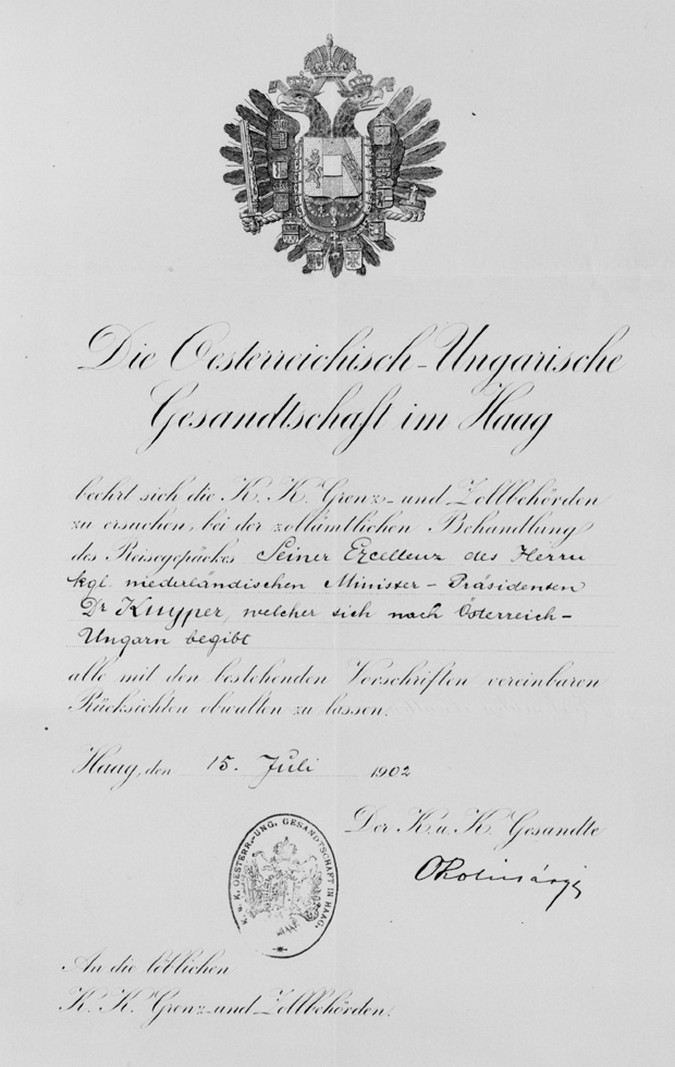 Die Oesterreichisch-Ungarische
Gesandtschaft im Haag
beehrt sich die K. K. Grenz- und Zollbehörden
zu ersuchen, bei der zollämtlichen Behandlung
des Reisegepäckes Seiner Excellenz des Herrn
kgl. niederländischen Minister-Präsidenten
Dr Kuyper, welcher sich nach Österreich-
Ungarn begibt
alle mit den bestehenden Vorschriften vereinbaren
Rücksichten obwalten zu lassen.
Haag, den 15. Juli 1902
Der K. u. K. Gesandte
K. u. K. OESTERR.-UNG. GESANDTSCHAFT IN HAAG.
An die löblichen
K. K. Grenz- und Zollbehörden.